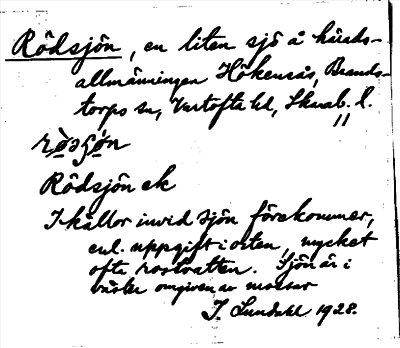 Rödsjön, en liten sjö å härads-
allmänningen Hökensås, Brands-
torps sn, Vartofta hd, Skarab. l.
Rödsjön ek
I källor invid sjön förekommer,
enl. uppgift i orten, mycket
ofta rostvatten. Sjön är i
väster omgiven av mossar
J. Lundahl 1928.